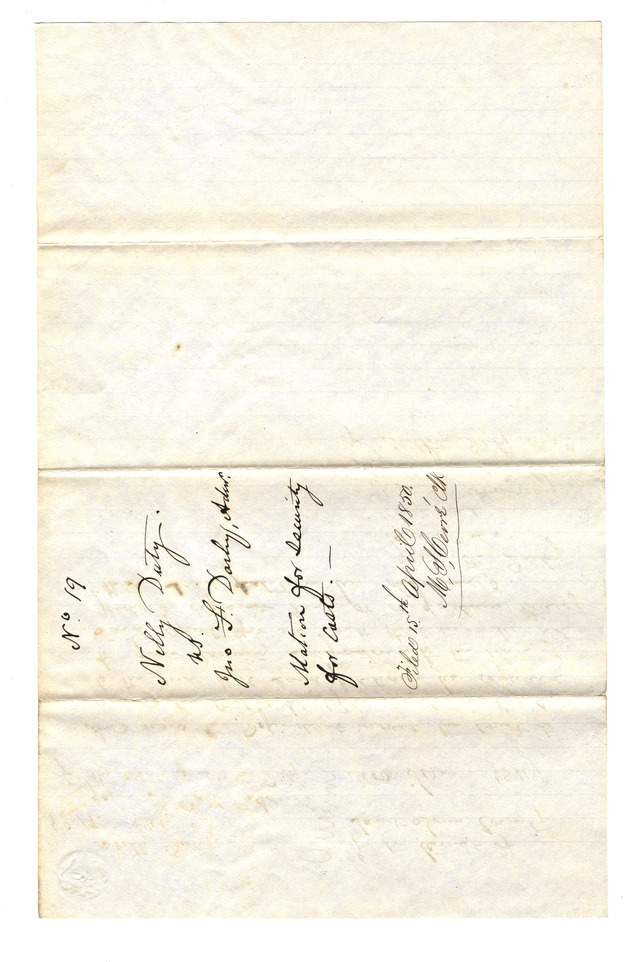 No 19
Nelly Duty.
vs.
Jno. F. Darby, Admr.
Motion for security
for costs. —
Filed 15th April 1850.
Clk